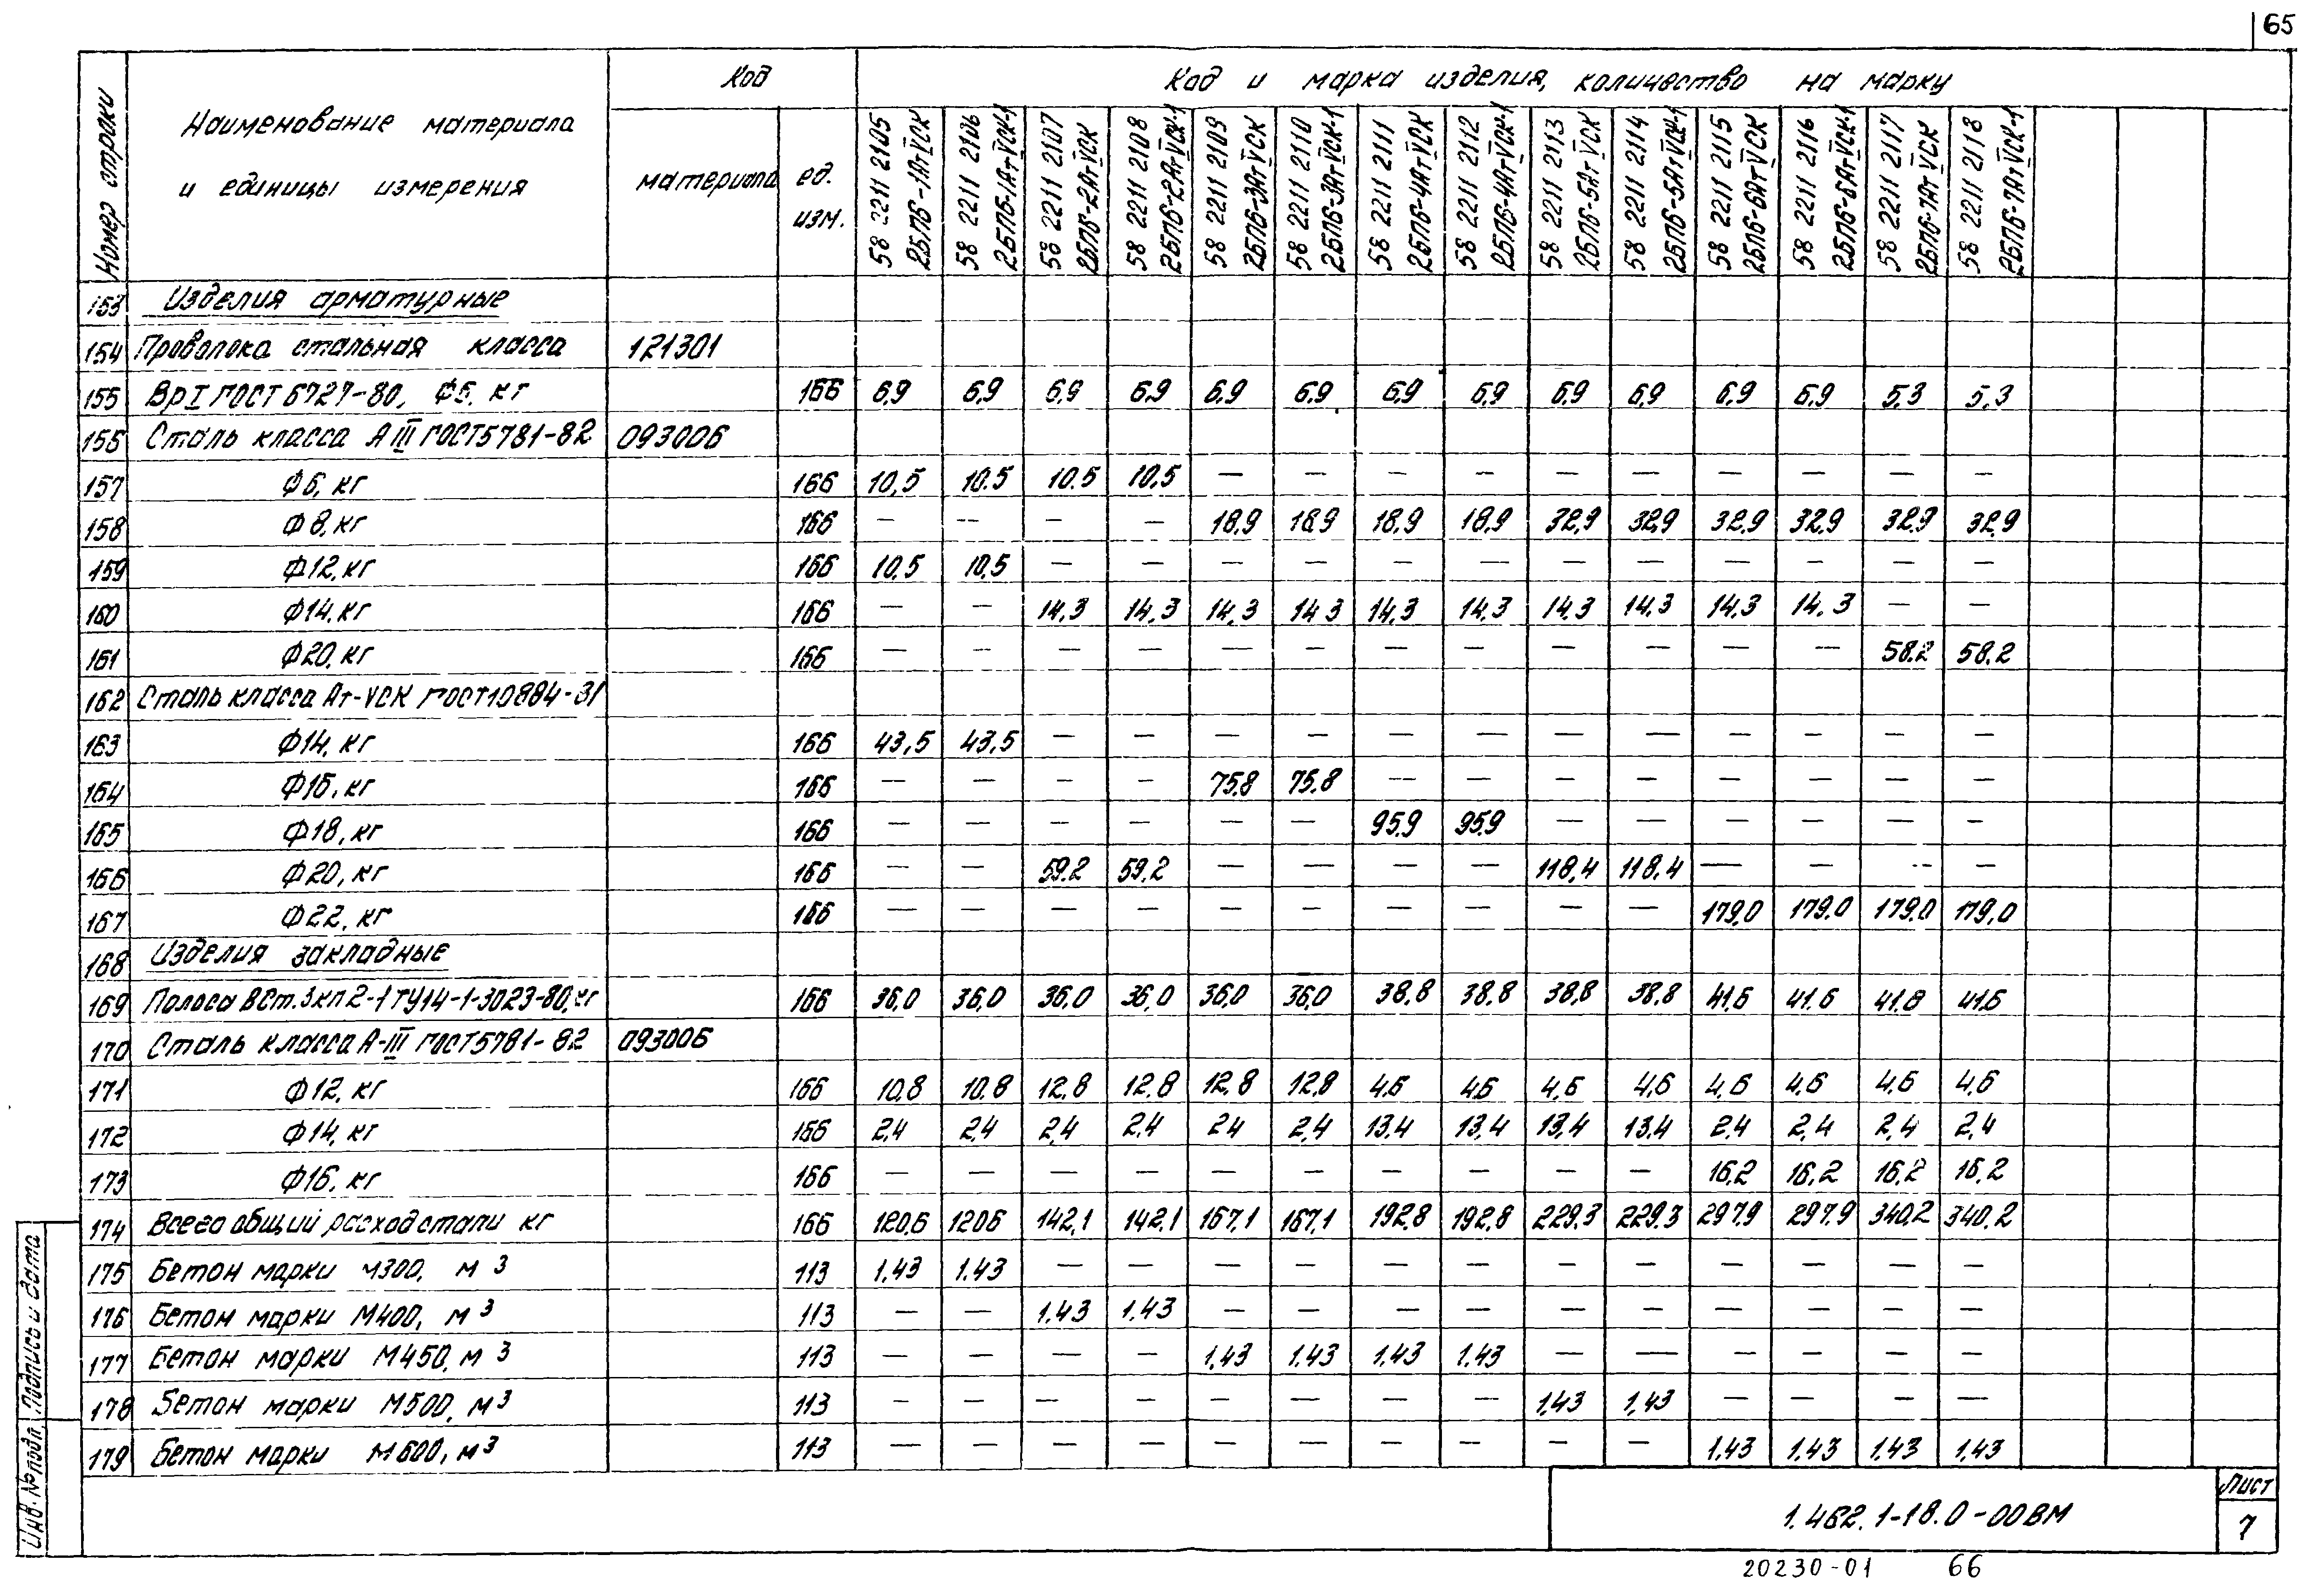 65
Номер строки
Наименование материала
и единицы измерения
Код
материала
ед.
изм.
Код и марка изделия, количество на марку
58 2211 2105
2БПБ-1АтVСК
58 2211 2106
2БПБ-1АтVСК-1
58 2211 2107
2БПБ-2АтVСК
58 2211 2108
2БПБ-2АтVСК-1
58 2211 2109
2БПБ-3АтVСК
58 2211 2110
2БПБ-3АтVСК-1
58 2211 2111
2БПБ-4АтVСК
58 2211 2112
2БПБ-4АтVСК-1
58 2211 2113
2БПБ-5АтVСК
58 2211 2114
2БПБ-5АтVСК-1
58 2211 2115
2БПБ-6АтVСК
58 2211 2116
2БПБ-6АтVСК-1
58 2211 2117
2БПБ-7АтVСК
58 2211 2118
2БПБ-7АтVСК-1
153 Изделия арматурные
154 Проволока стальная класса 121301
155 ВрI ГОСТ 6727-80, Ф5, кг 166 6,9 6,9 6,9 6,9 6,9 6,9 6,9 6,9 6,9 6,9 6,9 6,9 5,3 5,3
156 Сталь класса АIII ГОСТ5781-82 093006
157 Ф6, кг 166 10,5 10.5 10.5 10,5 — — — — — — — — — —
158 Ф8, кг 166 — — — — 18,9 18,9 18,9 18,9 32,9 32,9 32,9 32,9 32,9 32,9
159 Ф12, кг 166 10,5 10,5 — — — — — — — — — — — —
160 Ф14, кг 166 — — 14,3 14,3 14,3 14,3 14,3 14,3 14,3 14,3 14,3 14,3 — —
161 Ф20, кг 166 — — — — — — — — — — — — 58.2 58.2
162 Сталь класса Ат-VСК ГОСТ10884-81
163 Ф14, кг 166 43,5 43,5 — — — — — — — — — — — —
164 Ф16, кг 166 — — — — 75.8 75.8 — — — — — — — —
165 Ф18, кг 166 — — — — — — 95,9 95,9 — — — — — —
166 Ф20, кг 166 — — 59.2 59,2 — — — — 118,4 118,4 — — — —
167 Ф22, кг 166 — — — — — — — — — — 179,0 179,0 179,0 179,0
168 Изделия закладные
169 Полоса ВСт.3кп2-1 ТУ14-1-3023-80, кг 166 36,0 36,0 36,0 36,0 36,0 36,0 38,8 38,8 38,8 38,8 41,6 41.6 41.8 41.6
170 Сталь класса А-III ГОСТ5781-82 093006
171 Ф12, кг 166 10,8 10.8 12,8 12.8 12,8 12,8 4,6 4,6 4,6 4,6 4,6 4,6 4,6 4,6
172 Ф14, кг 166 2,4 2,4 2,4 2,4 2,4 2,4 13,4 13,4 13,4 13,4 2,4 2,4 2,4 2,4
173 Ф16, кг 166 — — — — — — — — — — 16,2 16,2 16,2 16,2
174 Всего общий расход стали кг 166 120,6 120,6 142,1 142,1 167,1 167,1 192,8 192,8 229,3 229,3 297,9 297,9 340,2 340,2
175 Бетон марки М300, м3 113 1.43 1.43 — — — — — — — — — — — —
176 Бетон марки М400, м3 113 — — 1.43 1.43 — — — — — — — — — —
177 Бетон марки М450, м3 113 — — — — 1,43 1.43 1.43 1.43 — — — — — —
178 Бетон марки М500, м3 113 — — — — — — — — 1,43 1,43 — — — —
179 Бетон марки М600, м3 113 — — — — — — — — — — 1.43 1.43 1.43 1,43
Инв.№подл. Подпись и дата
1.462.1-18.0-00ВМ
Лист
7
20230-01 66